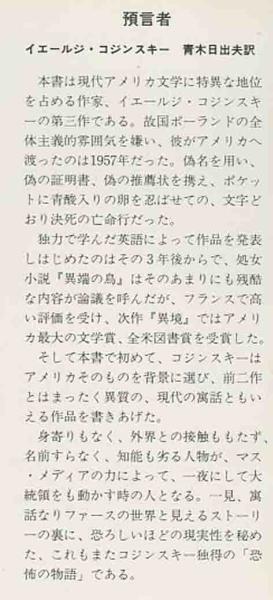 預言者
イエールジ・コジンスキー　青木日出夫訳
本書は現代アメリカ文学に特異な地位
を占める作家、イエールジ・コジンスキ
ーの第三作である。故国ポーランドの全
体主義的雰囲気を嫌い、彼がアメリカへ
渡ったのは1957年だった。偽名を用い、
偽の証明書、偽の推薦状を携え、ポケッ
トに青酸入りの卵を忍ばせての、文字ど
おり決死の亡命行だった。
独力で学んだ英語によって作品を発表
しはじめたのはその３年後からで、処女
小説『異端の鳥』はそのあまりにも残酷
な内容が論議を呼んだが、フランスで高
い評価を受け、次作『異境』ではアメリ
カ最大の文学賞、全米図書賞を受賞した。
そして本書で初めて、コジンスキーは
アメリカそのものを背景に選び、前二作
とはまったく異質の、現代の寓話ともい
える作品を書きあげた。
身寄りもなく、外界との接触ももたず、
名前すらなく、知能も劣る人物が、マス
・メディアの力によって、一夜にして大
統領をも動かす時の人となる。一見、寓
話なりファースの世界と見えるストーリ
ーの裏に、恐ろしいほどの現実性を秘め
た、これもまたコジンスキー独得の「恐
怖の物語」である。